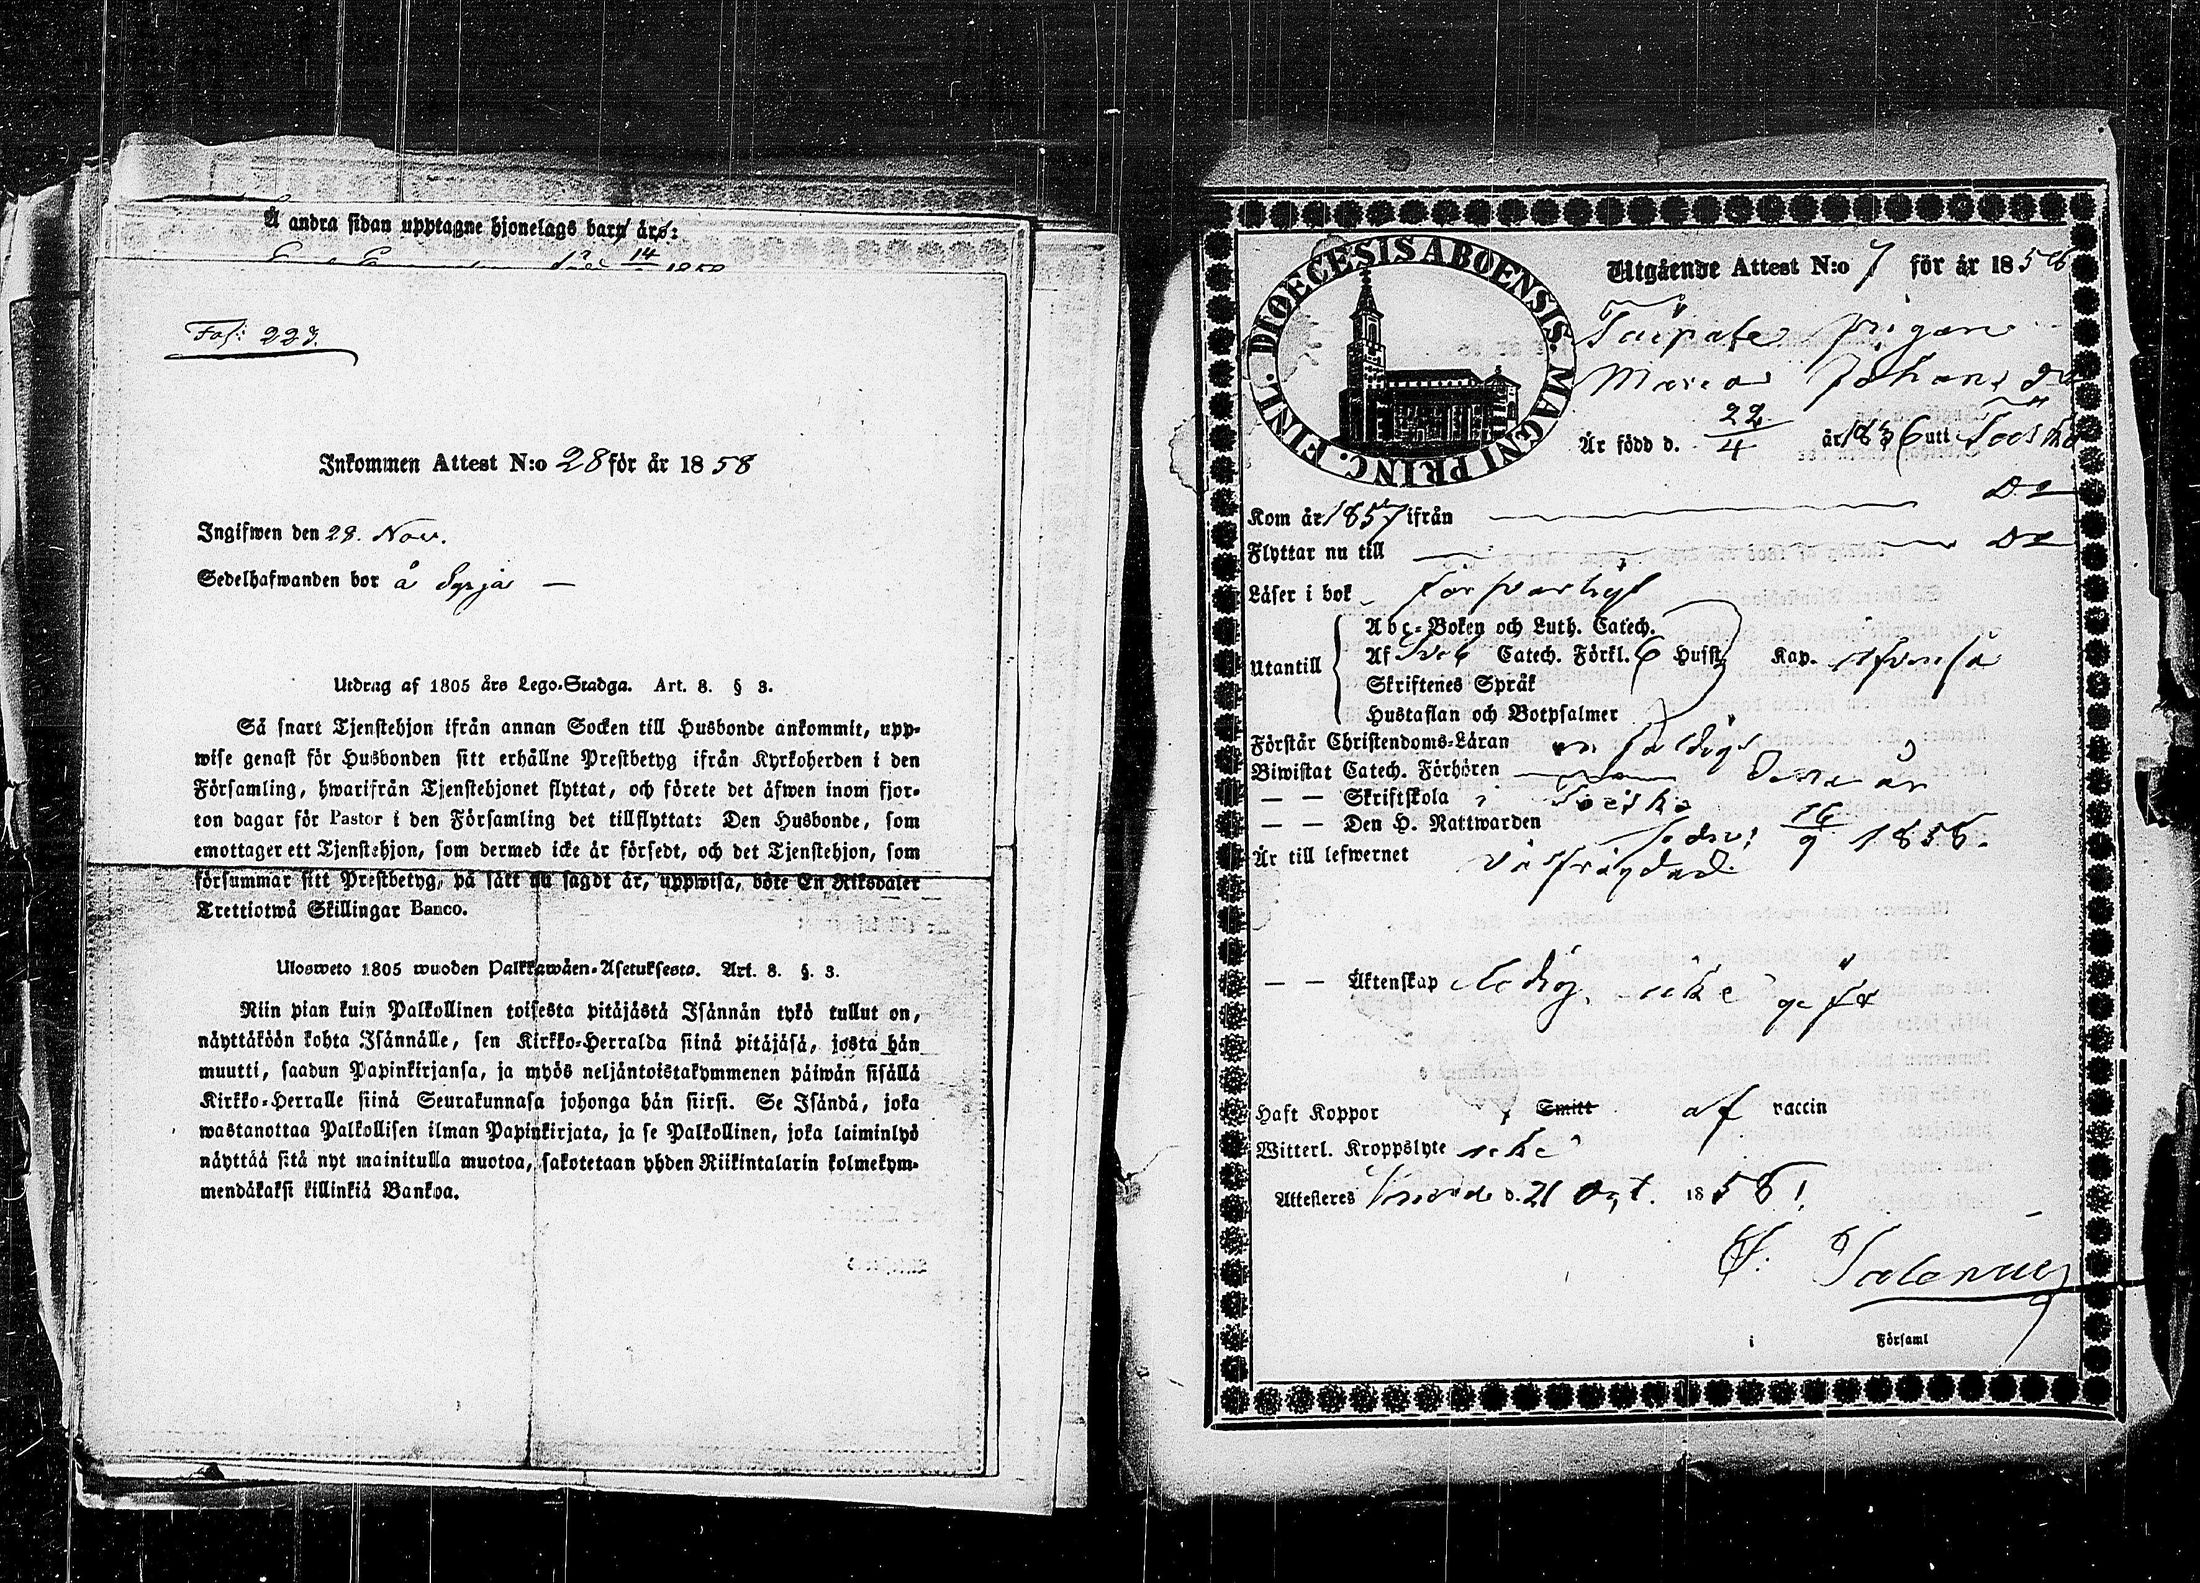 Å andra sidan upptagne hjonelags barn äro:
14
Fol: 223.
Inkommen Attest N:o 28 för år 1858
Ingifwen den 28. Nov.
Sedelhafwanden bor å Syrjä —
Utdrag af 1805 års Lego-Stadga. Art. 8. § 3.
Så snart Tjenstehjon ifrån annan Socken till Husbonde ankommit, upp-
wise genast för Husbonden sitt erhållne Prestbetyg ifrån Kyrkoherden i den
Församling, hwarifrån Tjenstehjonet flyttat, och förete det äfwen inom fjor-
ton dagar för Pastor i den Församling det tillflyttat: Den Husbonde, som
emottager ett Tjenstehjon, som dermed icke är försedt, och det Tjenstehjon, som
försummar sitt Prestbetyg, på sätt nu sagdt är, uppwisa, böte En Riksdaler
Trettiotwå Skillingar Banco.
Ulosweto 1805 wuoden Palkkawäen-Asetuksesta. Art. 8. §. 3.
Niin pian kuin Palkollinen toisesta pitäjästä Isännän tykö tullut on,
näyttäköön kohta Isännälle, sen Kirkko-Herralda siinä pitäjäsä, josta hän
muutti, saadun Papinkirjansa, ja myös neljäntoistakymmenen päiwän sisällä
Kirkko-Herralle siinä Seurakunnasa johonga hän siirsi. Se Isändä, joka
wastanottaa Palkollisen ilman Papinkirjata, ja se Palkollinen, joka laiminlyö
näyttää sitä nyt mainitulla muotoa, sakotetaan yhden Riikintalarin kolmekym-
mendäkaksi killinkiä Bankoa.
DIOECESIS ABOENSIS. MAGNI PRINC. FINL.
Utgående Attest N:o 7 för år 1858
Taipale pigan
Maria Johans dr
Är född d. 22/4 år 1836 utt
Kom år 1857 ifrån — Do
Flyttar nu till — Do
Läser i bok försvarligt
Abc-Boken och Luth. Catech.
Utantill Af Sveb Catech. Förkl. 6 Hufst Kap.
Skriftenes Språk
Hustaflan och Botpsalmer
Förstår Christendoms-Läran enfaldigt
Biwistat Catech. Förhören — detta år
— — Skriftskola i
— — Den H. Nattwarden sedn: 16/9 1858.
Är till lefwernet välfrägdad.
— — Äktenskap ledig, icke gift
Haft Koppor , Smitt af vaccin
Witterl. Kroppslyte icke
Attesteres d. 21 Oct. 1858.
i Församl